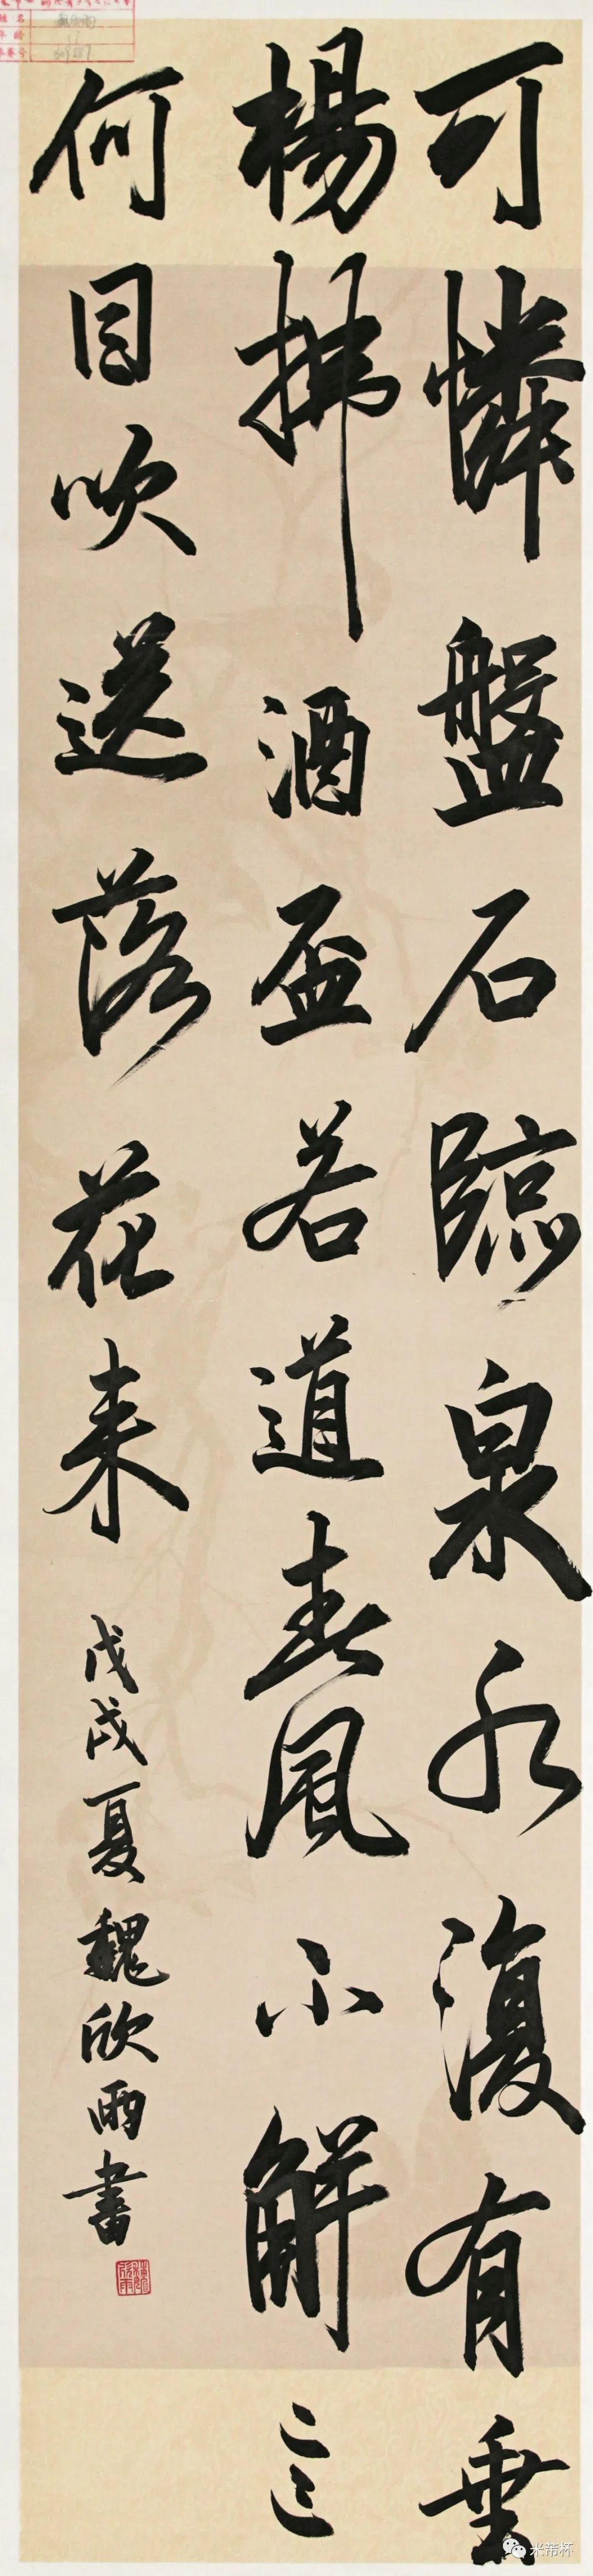 可憐盤石臨泉水復有垂
楊拂酒盃若道春風不解意
何因吹送落花来
戊戌夏魏欣雨書
姓名
米芾杯